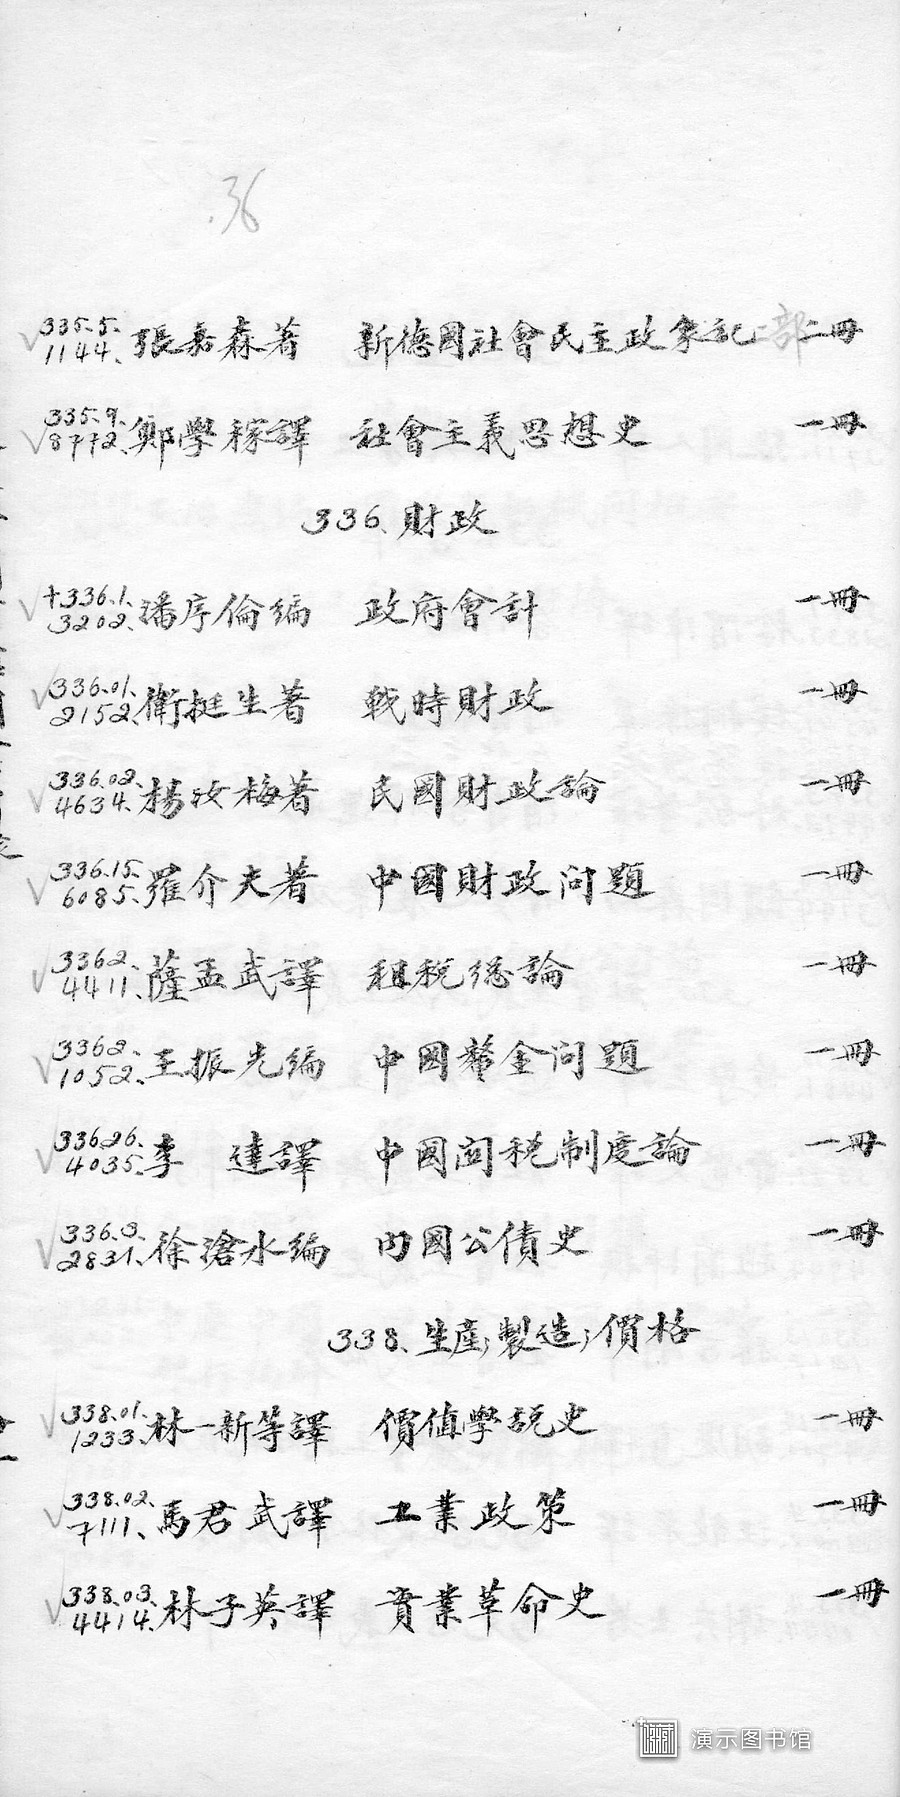 36
√ 335.5. 1144. 張嘉森著 新德國社會民主政象記 二部 二冊
√ 335.9. 8772. 鄭學稼譯 社會主義思想史 一冊
336. 財政
√ +336.1. 3202. 潘序倫編 政府會計 一冊
√ 336.01. 2152. 衛挺生著 戰時財政 一冊
√ 336.02. 4634. 楊汝梅著 民國財政論 一冊
√ 336.15. 6085. 羅介夫著 中國財政问題 一冊
√ 336.2. 4411. 薩孟武譯 租稅總論 一冊
√ 336.2. 1052. 王振先編 中國釐金问題 一冊
√ 336.26. 4035. 李 達譯 中國関稅制度論 一冊
√ 336.3. 2831. 徐滄水編 內國公債史 一冊
338. 生產;製造;價格
√ 338.01. 1233. 林一新等譯 價值學說史 一冊
√ 338.02. 7111. 馬君武譯 工業政策 一冊
√ 338.03. 4414. 林子英譯 實業革命史 一冊
演示图书馆